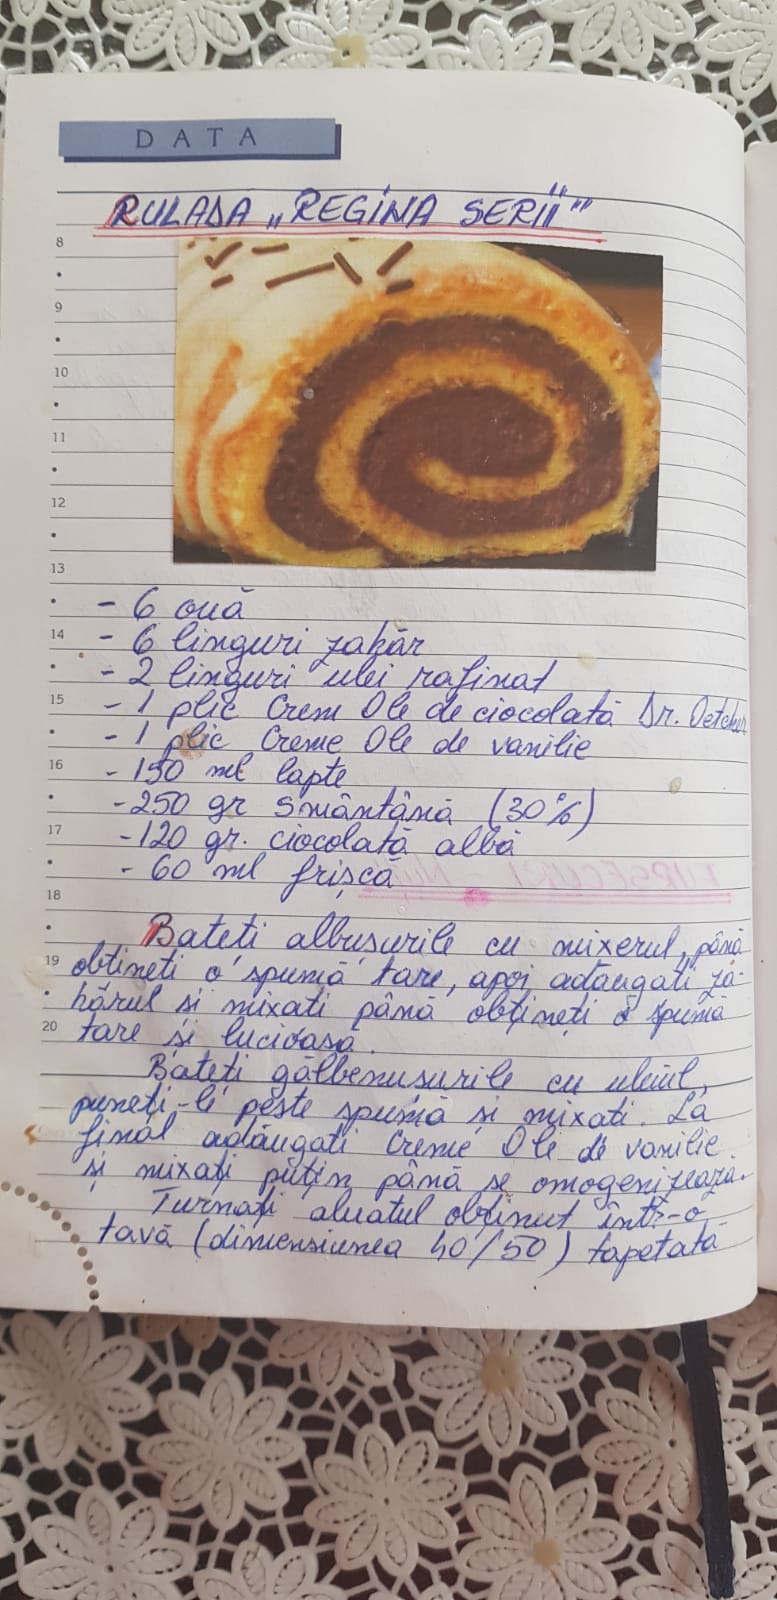 DATA
RULADA „REGINA SERII"
8
9
10
11
12
13
14
15
16
17
18
19
20
- 6 ouă
- 6 linguri zahăr
- 2 linguri ulei rafinat
- 1 plic Crem Ole de ciocolată Dr. Oetcher
- 1 plic Creme Ole de vanilie
- 150 ml lapte
- 250 gr smântână (30%)
- 120 gr. ciocolată albă
- 60 ml frișcă
Bateti albușurile cu mixerul, până
obțineți o spumă tare, apoi adăugati za-
hărul si mixati până obțineți o spumă
tare și lucioasă.
Bateți gălbenușurile cu uleiul,
puneți-le peste spumă si mixati. La
final adăugati Creme Ole de vanilie
și mixați puțin până se omogenizează.
Turnați aluatul obținut într-o
tavă (dimensiunea 40/50) tapetată